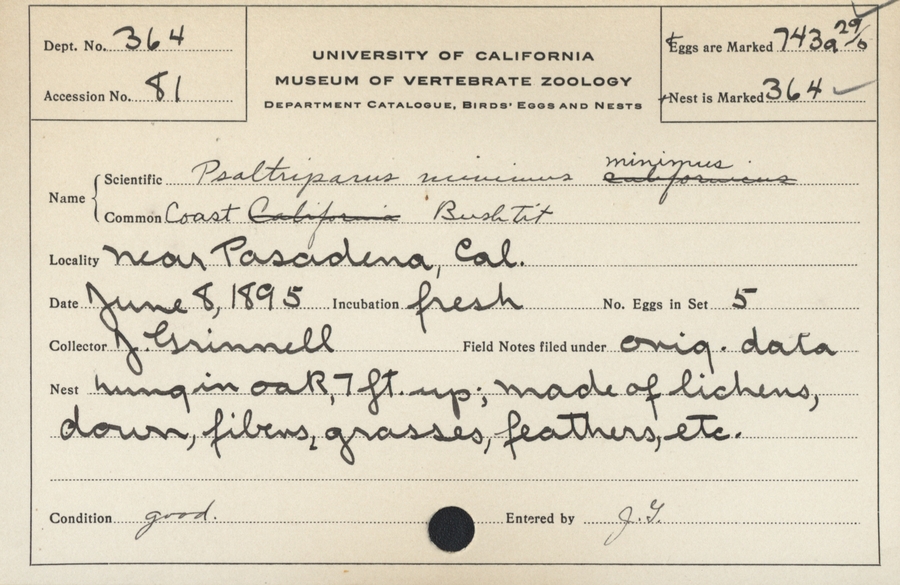 Dept. No. 364
Accession No. 81
UNIVERSITY OF CALIFORNIA
MUSEUM OF VERTEBRATE ZOOLOGY
DEPARTMENT CATALOGUE, BIRDS' EGGS AND NESTS
Eggs are Marked 743a 29/5
Nest is Marked 364 ✓
Name
Scientific Psaltriparus minimus californicus minimus
Common Coast California Bushtit
Locality near Pasadena, Cal.
Date June 8, 1895 Incubation fresh No. Eggs in Set 5
Collector J. Grinnell Field Notes filed under orig. data
Nest hung in oak, 7 ft. up; made of lichens,
down, fibers, grasses, feathers, etc.
Condition good. Entered by J.G.